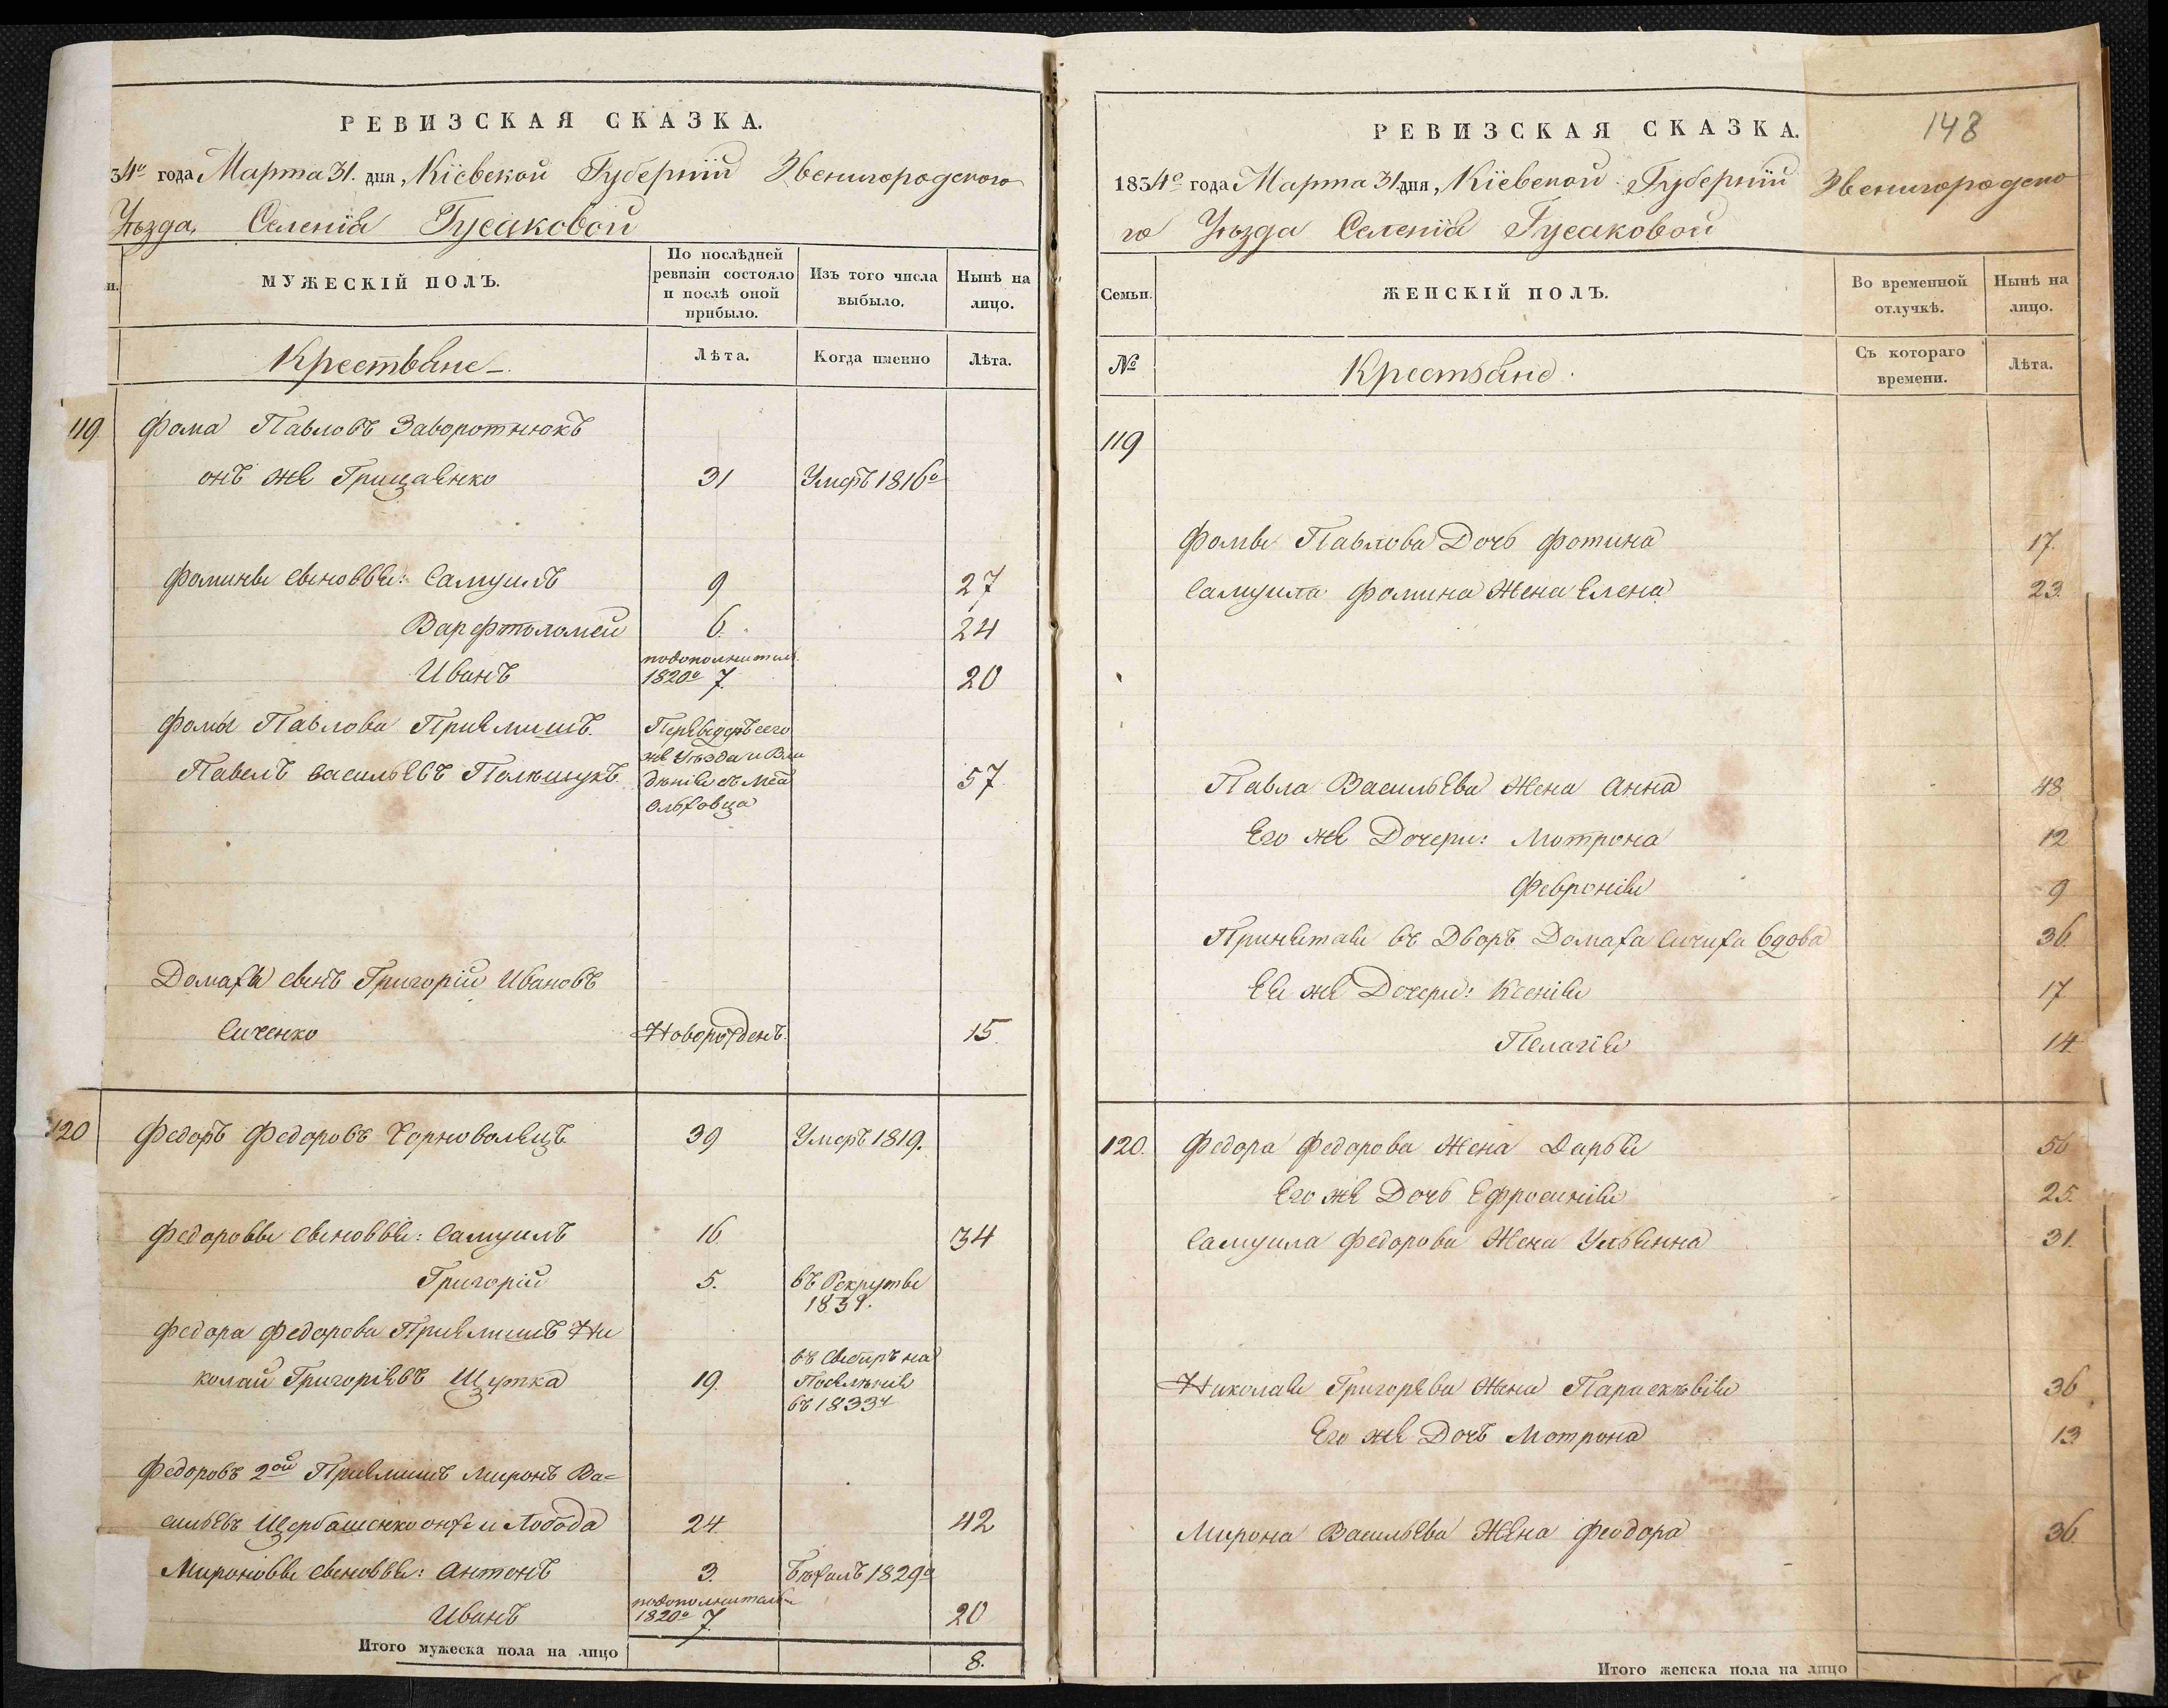 РЕВИЗСКАЯ СКАЗКА.
34го года Марта 31. дня, Кіевской Губерніи Звенигородского
Уѣзда, Селенія Гусаковой
и.
МУЖЕСКІЙ ПОЛЪ.
По послѣдней ревизіи состояло и послѣ оной прибыло.
Изъ того числа выбыло.
Нынѣ на лицо.
Крестьяне
Лѣта.
Когда именно
Лѣта.
119. Фома Павловъ Заворотнюкъ
онъ же Грицаенко 31 Умеръ 1816го
Фомины сыновья: Самуилъ 9 27
Варфтоломей 6. 24
Иванъ подополнитель. 1820го 7. 20
Фомы Павлова Приемышъ.
Павелъ Васильевъ Полищукъ 57
Переведенъ сего
же Уѣзда и Вла
дѣнія съ Мѣс
Ольховца
Домахи сынъ Григорій Ивановъ
Сиченко Новорожденъ. 15.
120 Федоръ Федоровъ Чорноволецъ 39 Умеръ 1819.
Федоровы сыновья: Самуилъ 16 34
Григорій 5. въ Рекруты
1831.
Федора Федорова Приемышъ Ни
колай Григоріевъ Щупка 19. въ Сибирь на
Поселеніе
въ 1833г
Федоровъ 2ой Приемышъ Миронъ Ва=
сильевъ Щербашенко онже и Лобода 24. 42
Мироновы сыновья: Антонъ 3. Бѣжалъ 1829го
Иванъ подополнитель 1820го 7. 20
Итого мужеска пола на лицо 8.
148
РЕВИЗСКАЯ СКАЗКА.
1834го года Марта 31 дня, Кіевской Губерніи Звенигородско
го Уѣзда Селенія Гусаковой
Семьи.
ЖЕНСКІЙ ПОЛЪ.
Во временной отлучкѣ.
Нынѣ на лицо.
№
Крестьяне.
Съ котораго времени.
Лѣта.
119
Фомы Павлова Дочь Фотина 17.
Самуила Фомина Жена Елена 23.
Павла Васильева Жена Анна 48
Его же Дочери: Мотрона 12
Февронія 9
Принятая въ Дворъ Домаха Сичиха вдова 36.
Ея же Дочери: Ксенія 17
Пелагія 14.
120. Федора Федорова Жена Дарья 56
Его же Дочь Ефросинія 25.
Самуила Федорова Жена Ульянна 31.
Николая Григорьева Жена Параскѣвія 36
Его же Дочь Мотрона 13
Мирона Васильева Жена Феодора 36.
Итого женска пола на лицо